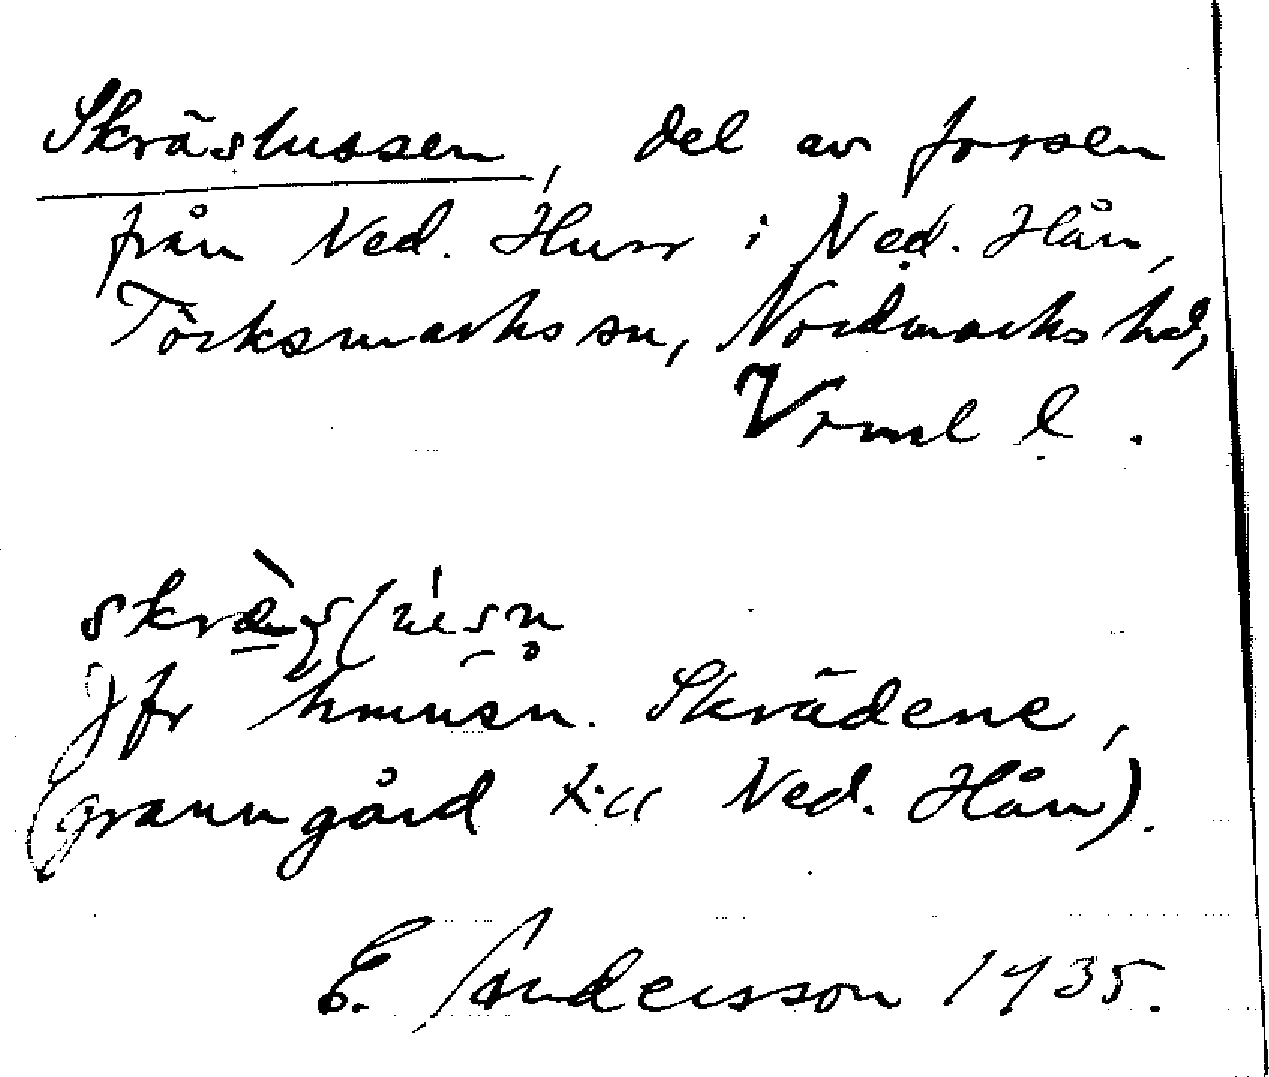 Skräslussen, del av forsen
från Ned. Hurr i Ned. Hån,
Töcksmarks sn, Nordmarks hd,
Vrml l.
jfr hmnsn. Skrädene,
(granngård till Ned. Hån).
E. Andersson 1935.